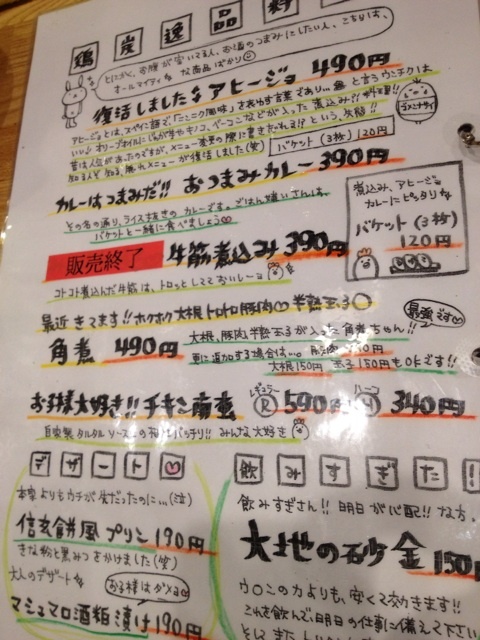 鶏 炭 逸 品 料
とにかく、お腹が空いてる人、お酒のつまみにしたい人、こちらは、
オールマイティな商品ばかり
復活しました アヒージョ 490円
アヒージョとは、スペイン語で「にんにく風味」をあらわす言葉であり… と言うウンチクは
いい オリーブオイルにじゃがキノコ、ベーコンなどが入った煮込み!!
昔は人気があったのですが、メニュー変更の際に書き忘れる!?という、失態!!
ゴメンナサイ
知る人ぞ知る、無メニューが復活しました(笑)
バケット(3枚)120円
カレーはつまみだ!! おつまみカレー 390円
その名の通り、ライス抜きのカレーです。ごはん嫌いさんは、
バケットと一緒に食べましょう
煮込み、アヒージョ
カレーにピッタリな
バケット(3枚)
120円
販売終了 牛筋煮込み 390円
コトコト煮込んだ牛筋は、トロッとしてておいしーよ
最近きてます!! ホクホク大根 トロトロ豚肉♡ 半熟玉子
最強です♡
角煮 490円
大根、豚肉、半熟玉子が入った角煮ちゃん!!
更に追加する場合は…。
大根150円 玉子150円もOFです!!
お子様大好き!! チキン南蛮
レギュラー R 590円 ハーフ H 340円
自家製タルタルソースとの相性バッチリ!! みんな大好き
デザート♡
本家よりもウチが先だったのに…(泣)
信玄餅風プリン 190円
きな粉と黒みつをかけました(笑)
大人のデザート
お子様はダメよ
マシュマロ酒粕漬け 190円
飲みすぎた!!
飲みすぎさん!! 明日が心配!! な方、
大地の砂金 150円
ウ〇コの力よりも、安くて効きます!!
これを飲んで、明日の仕事に備えて下さい